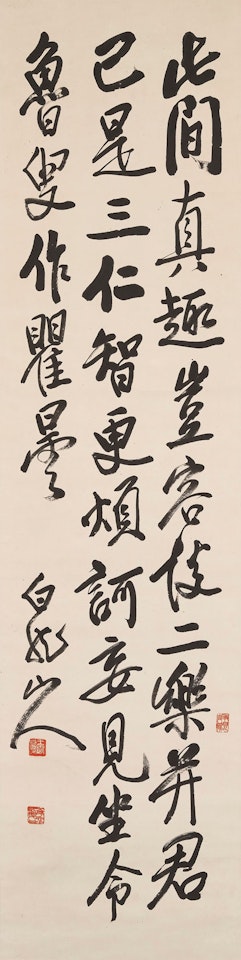 此間真趣豈容談二樂并君
已是三仁智更煩訶妄見坐令
魯叟作瞿曇
白龍山人